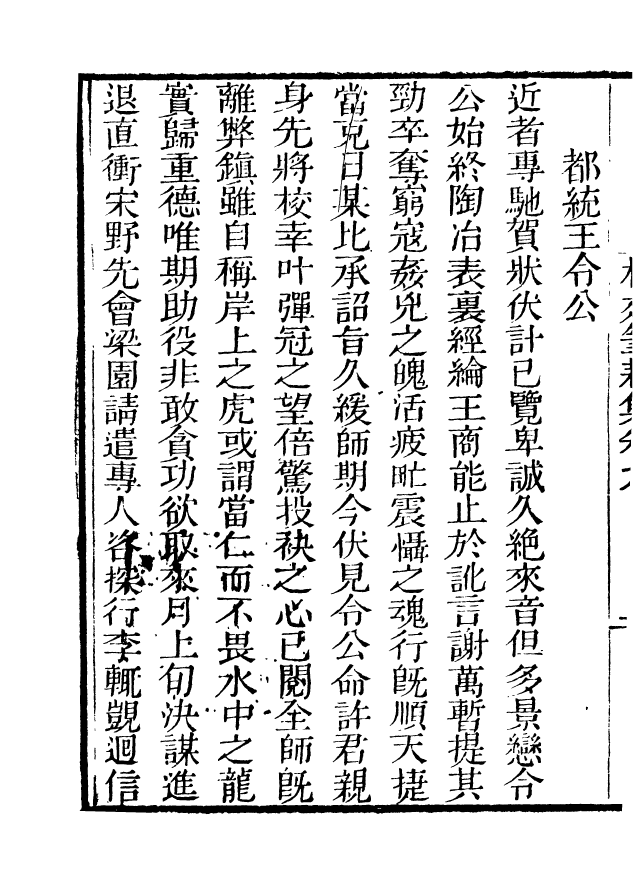 都統王令公
近者專馳賀狀伏計已覽卑誠久絕來音但多景戀令
公始終陶冶表裏經綸王商能止於訛言謝萬暫提其
勁卒奪窮寇姦兇之魄活疲甿震懾之魂行旣順天捷
當克日某比承詔旨久緩師期今伏見令公命許君親
身先將校幸叶彈冠之望倍驚投袂之心已閱全師旣
離弊鎭雖自稱岸上之虎或謂當仁而不畏水中之龍
實歸重德唯期助役非敢貪功欲取來月上旬決謀進
退直衝宋野先會梁園請遣專人洛探行李輒覬迴信